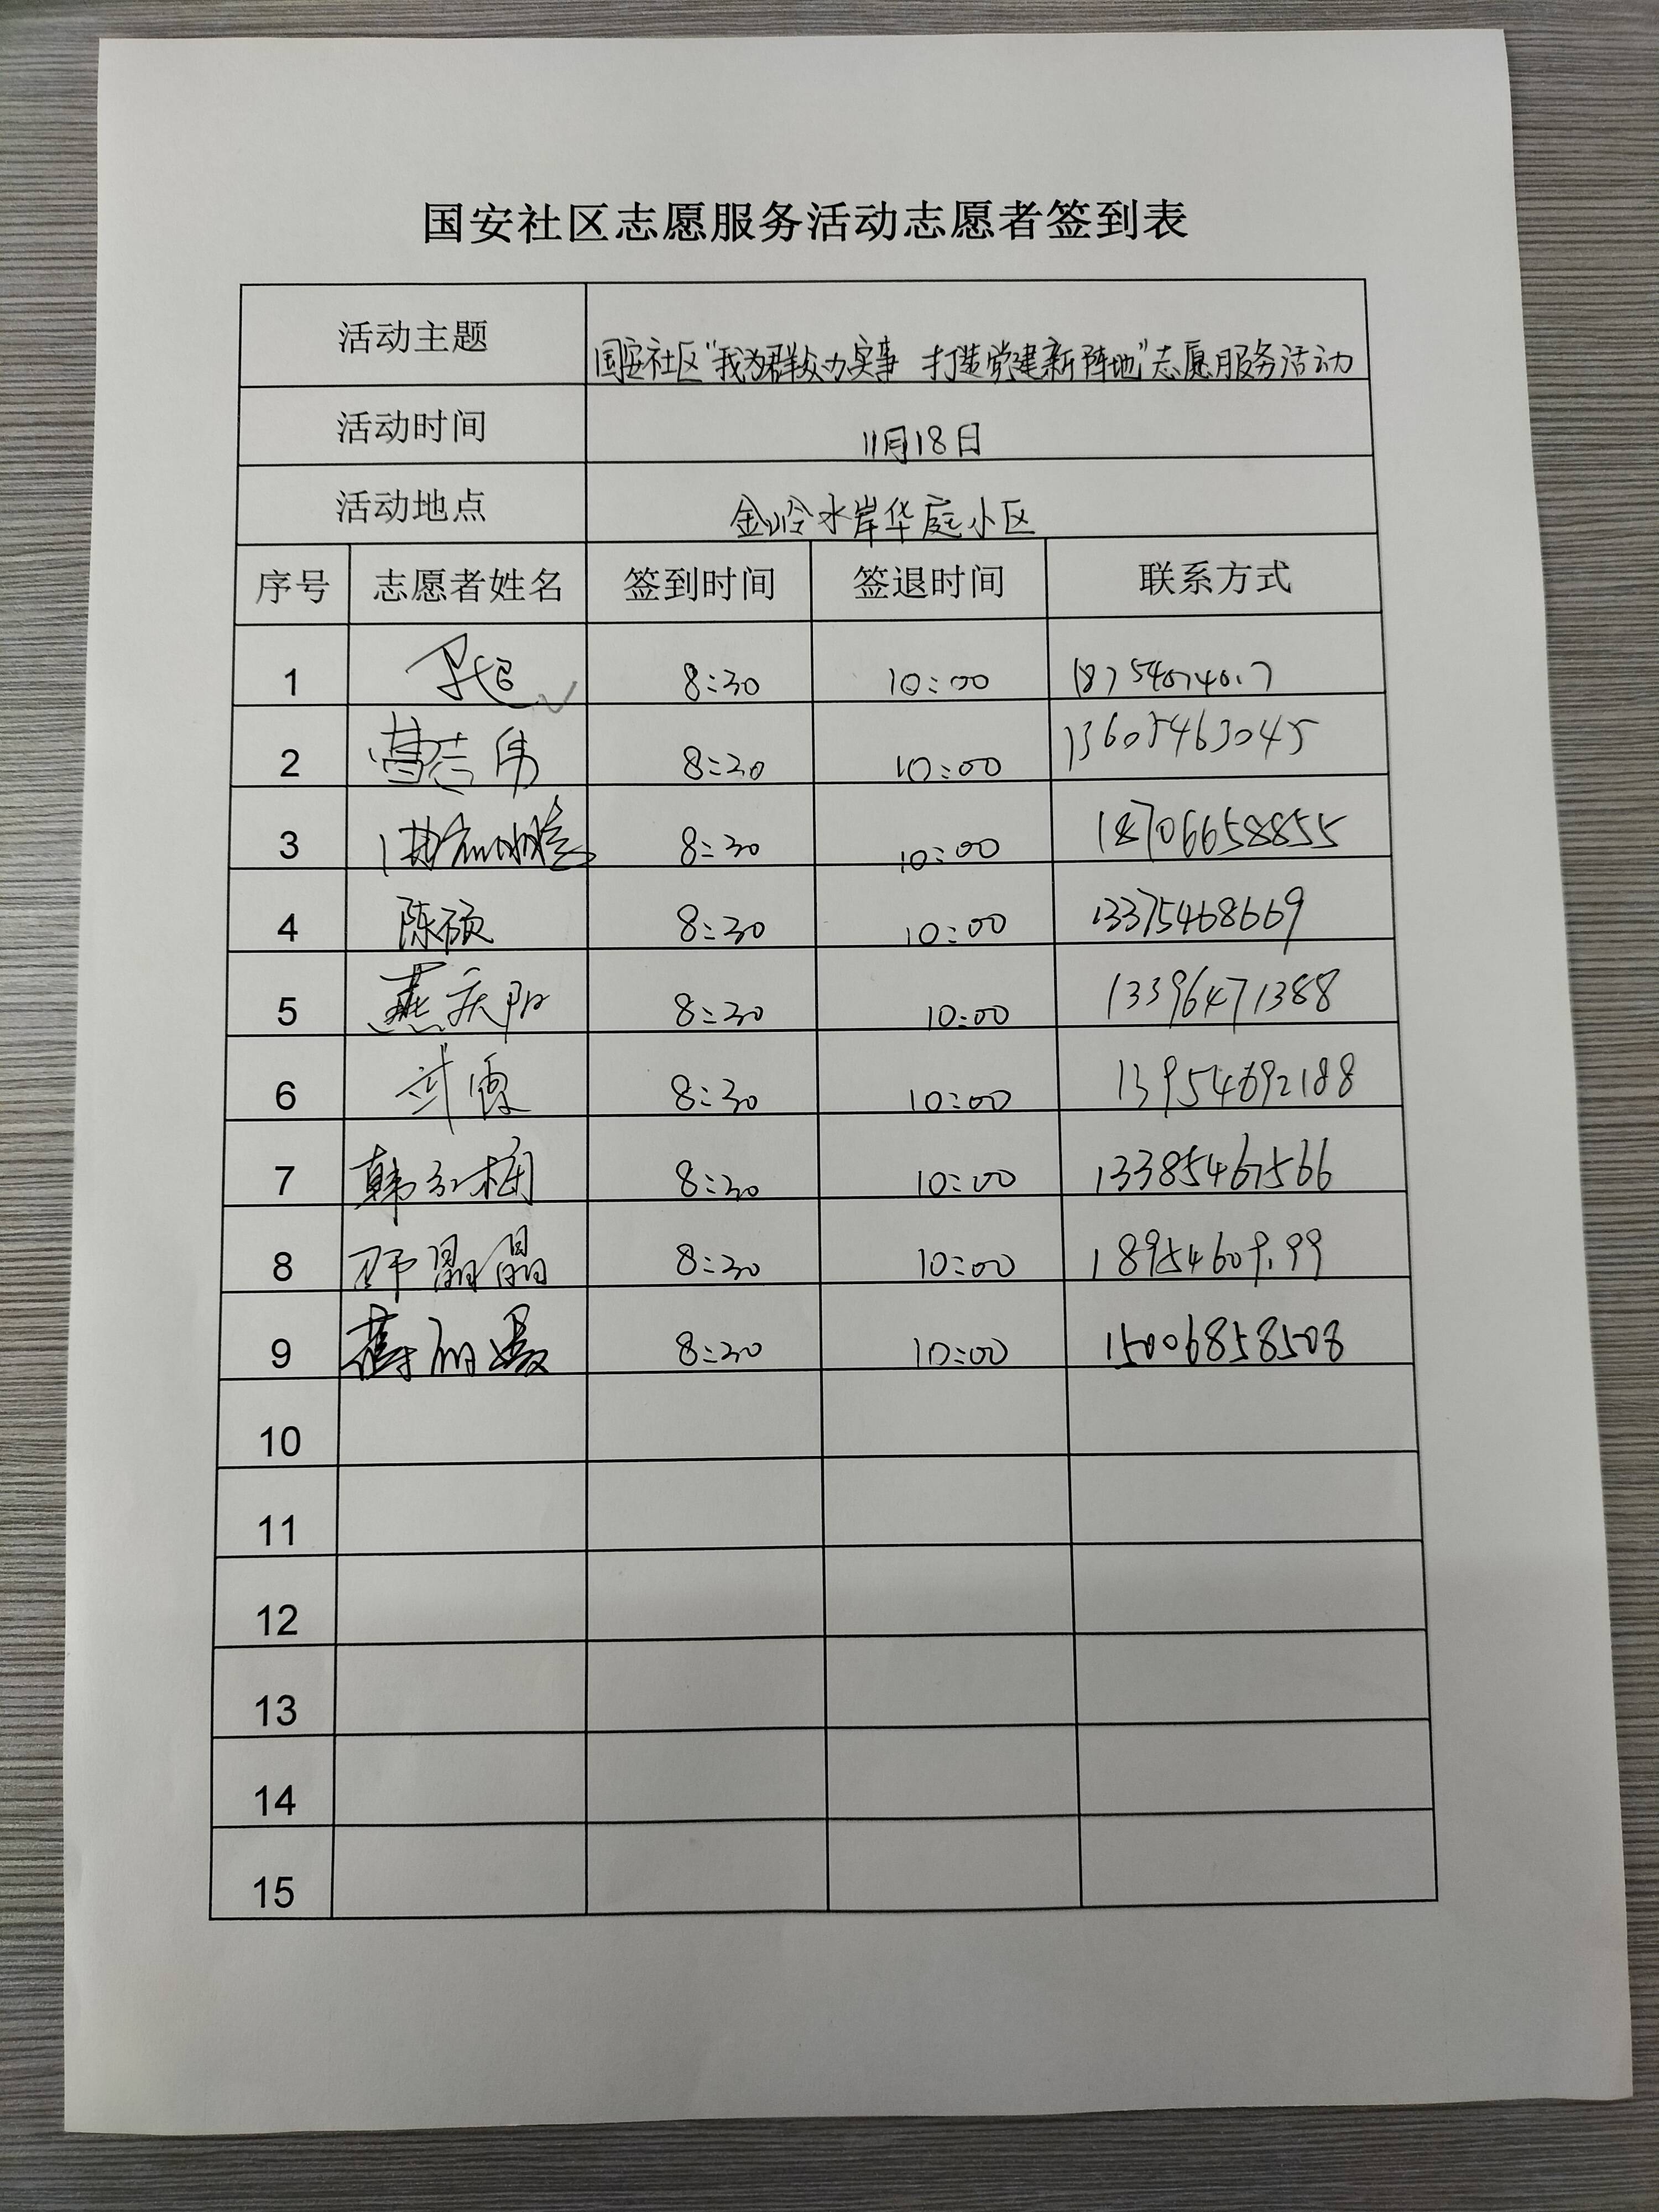 国安社区志愿服务活动志愿者签到表
活动主题 国安社区“我为群众办实事 打造党建新阵地”志愿服务活动
活动时间 11月18日
活动地点 金岭水岸华庭小区
序号 志愿者姓名 签到时间 签退时间 联系方式
1 8:30 10:00
2 8:30 10:00 13605463045
3 8:30 10:00 18706658855
4 陈硕 8:30 10:00 13375468669
5 燕庆阳 8:30 10:00 13396471388
6 8:30 10:00 13954692188
7 8:30 10:00 13385467566
8 晶晶 8:30 10:00
9 8:30 10:00 15006858508
10
11
12
13
14
15